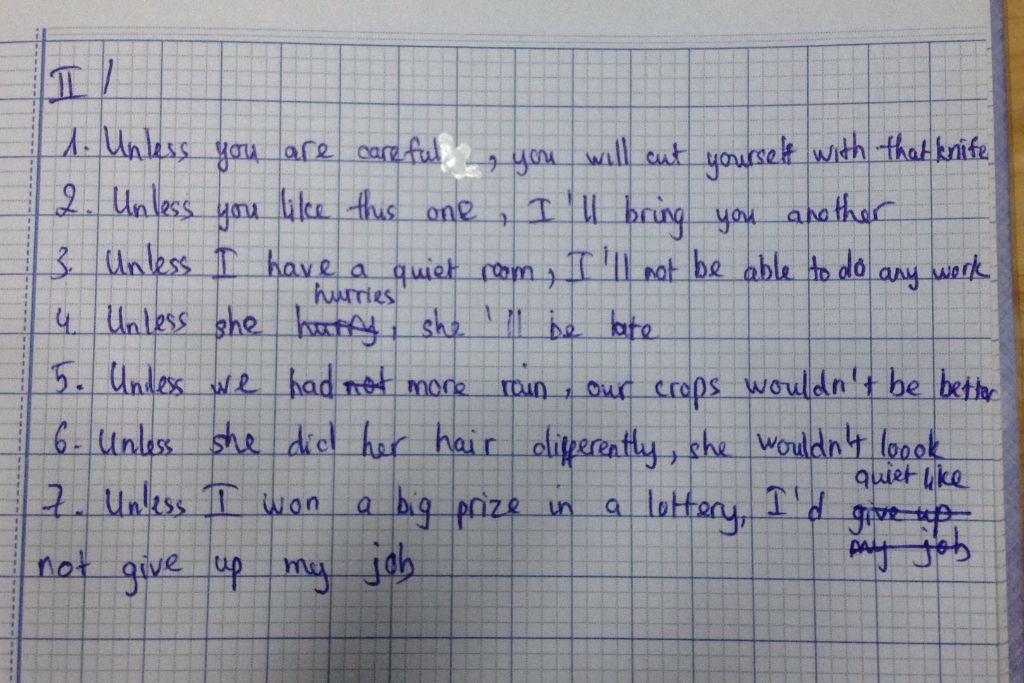 II /
1. Unless you are careful, you will cut yourself with that knife
2. Unless you like this one, I'll bring you another
3. Unless I have a quiet room, I'll not be able to do any work
hurries
4. Unless she , she'll be late
5. Unless we had not more rain, our crops wouldn't be better
6. Unless she did her hair differently, she wouldn't loook
quiet like
7. Unless I won a big prize in a lottery, I'd give up
my job
not give up my job